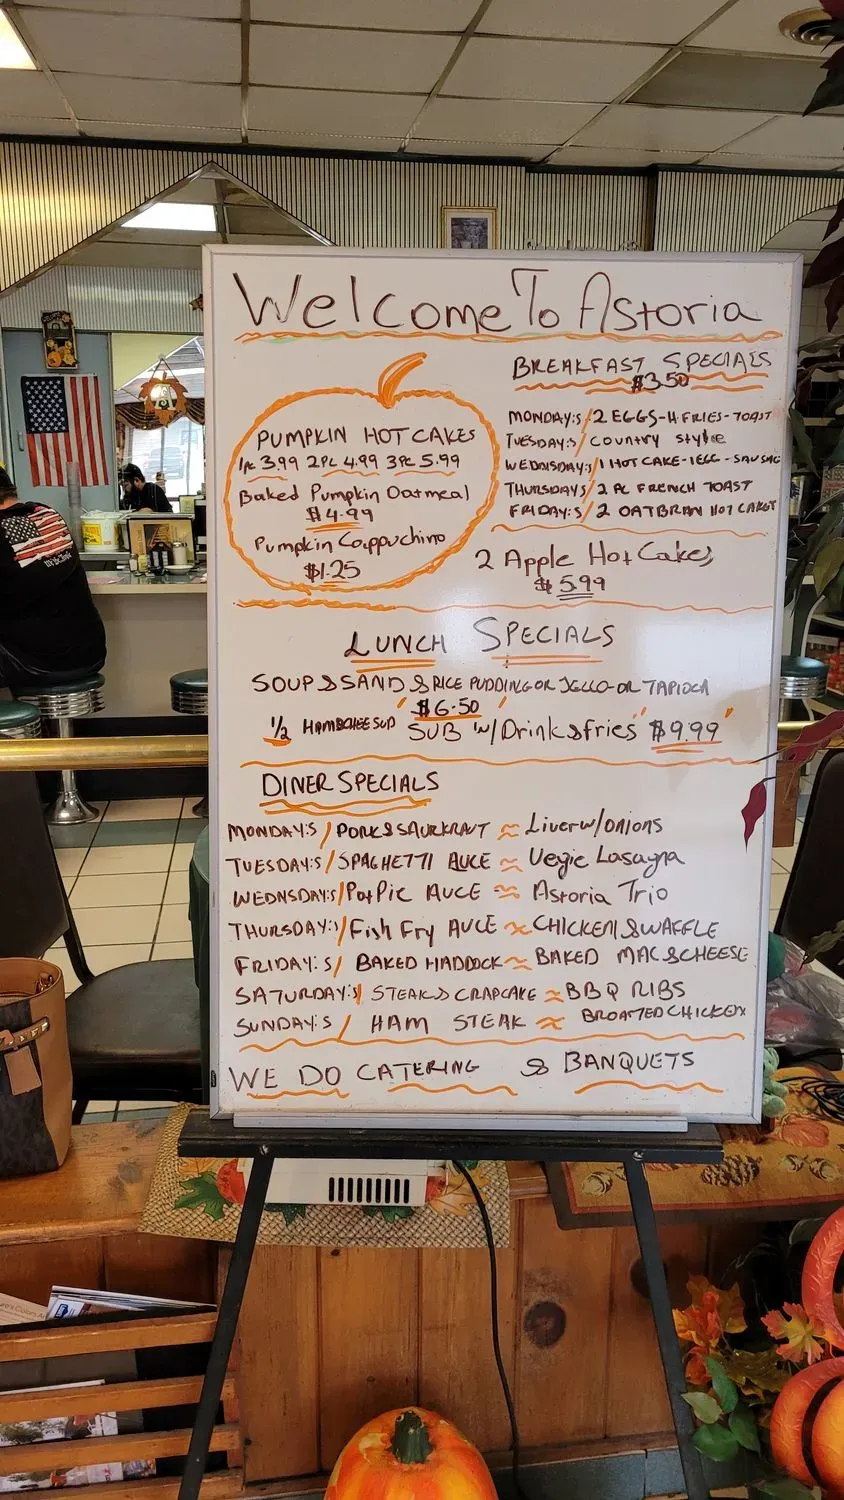 Welcome To Astoria
PUMPKIN HOT CAKES
1pc 3.99 2PC 4.99 3PC 5.99
Baked Pumpkin Oatmeal
$4.99
Pumpkin Cappuchino
$1.25
BREAKFAST SPECIALS
$3.50
MONDAY:S/2 EGGS-H.FRIES-TOAST
TUESDAY:S/COUNTRY STYLE
WEDNSDAY:S/1 HOT CAKE-1EGG-SAUSAG
THURSDAYS/2 PC FRENCH TOAST
FRIDAY:S/2 OATBRAN HOT CAKES
2 Apple Hot Cakes
$5.99
LUNCH SPECIALS
SOUP & SAND & RICE PUDDING OR JELLO-OR TAPIOCA
"$6.50"
1/2 HAM&CHEE SUP SUB w/Drink&fries" $9.99"
DINER SPECIALS
MONDAY:S / PORK&SAURKRAUT ≈ Liver w/ onions
TUESDAY:S / SPAGHETTI AUCE ≈ Vegie Lasagna
WEDNSDAY:S/Pot Pie AUCE ≈ Astoria Trio
THURSDAY:S/Fish Fry AUCE ≈ CHICKEN & WAFFLE
FRIDAY:S/ BAKED HADDOCK ≈ BAKED MAC & CHEESE
SATURDAY:S/ STEAK & CRAPCAKE ≈ BBQ RIBS
SUNDAY:S / HAM STEAK ≈ BROASTED CHICKEN
WE DO CATERING & BANQUETS